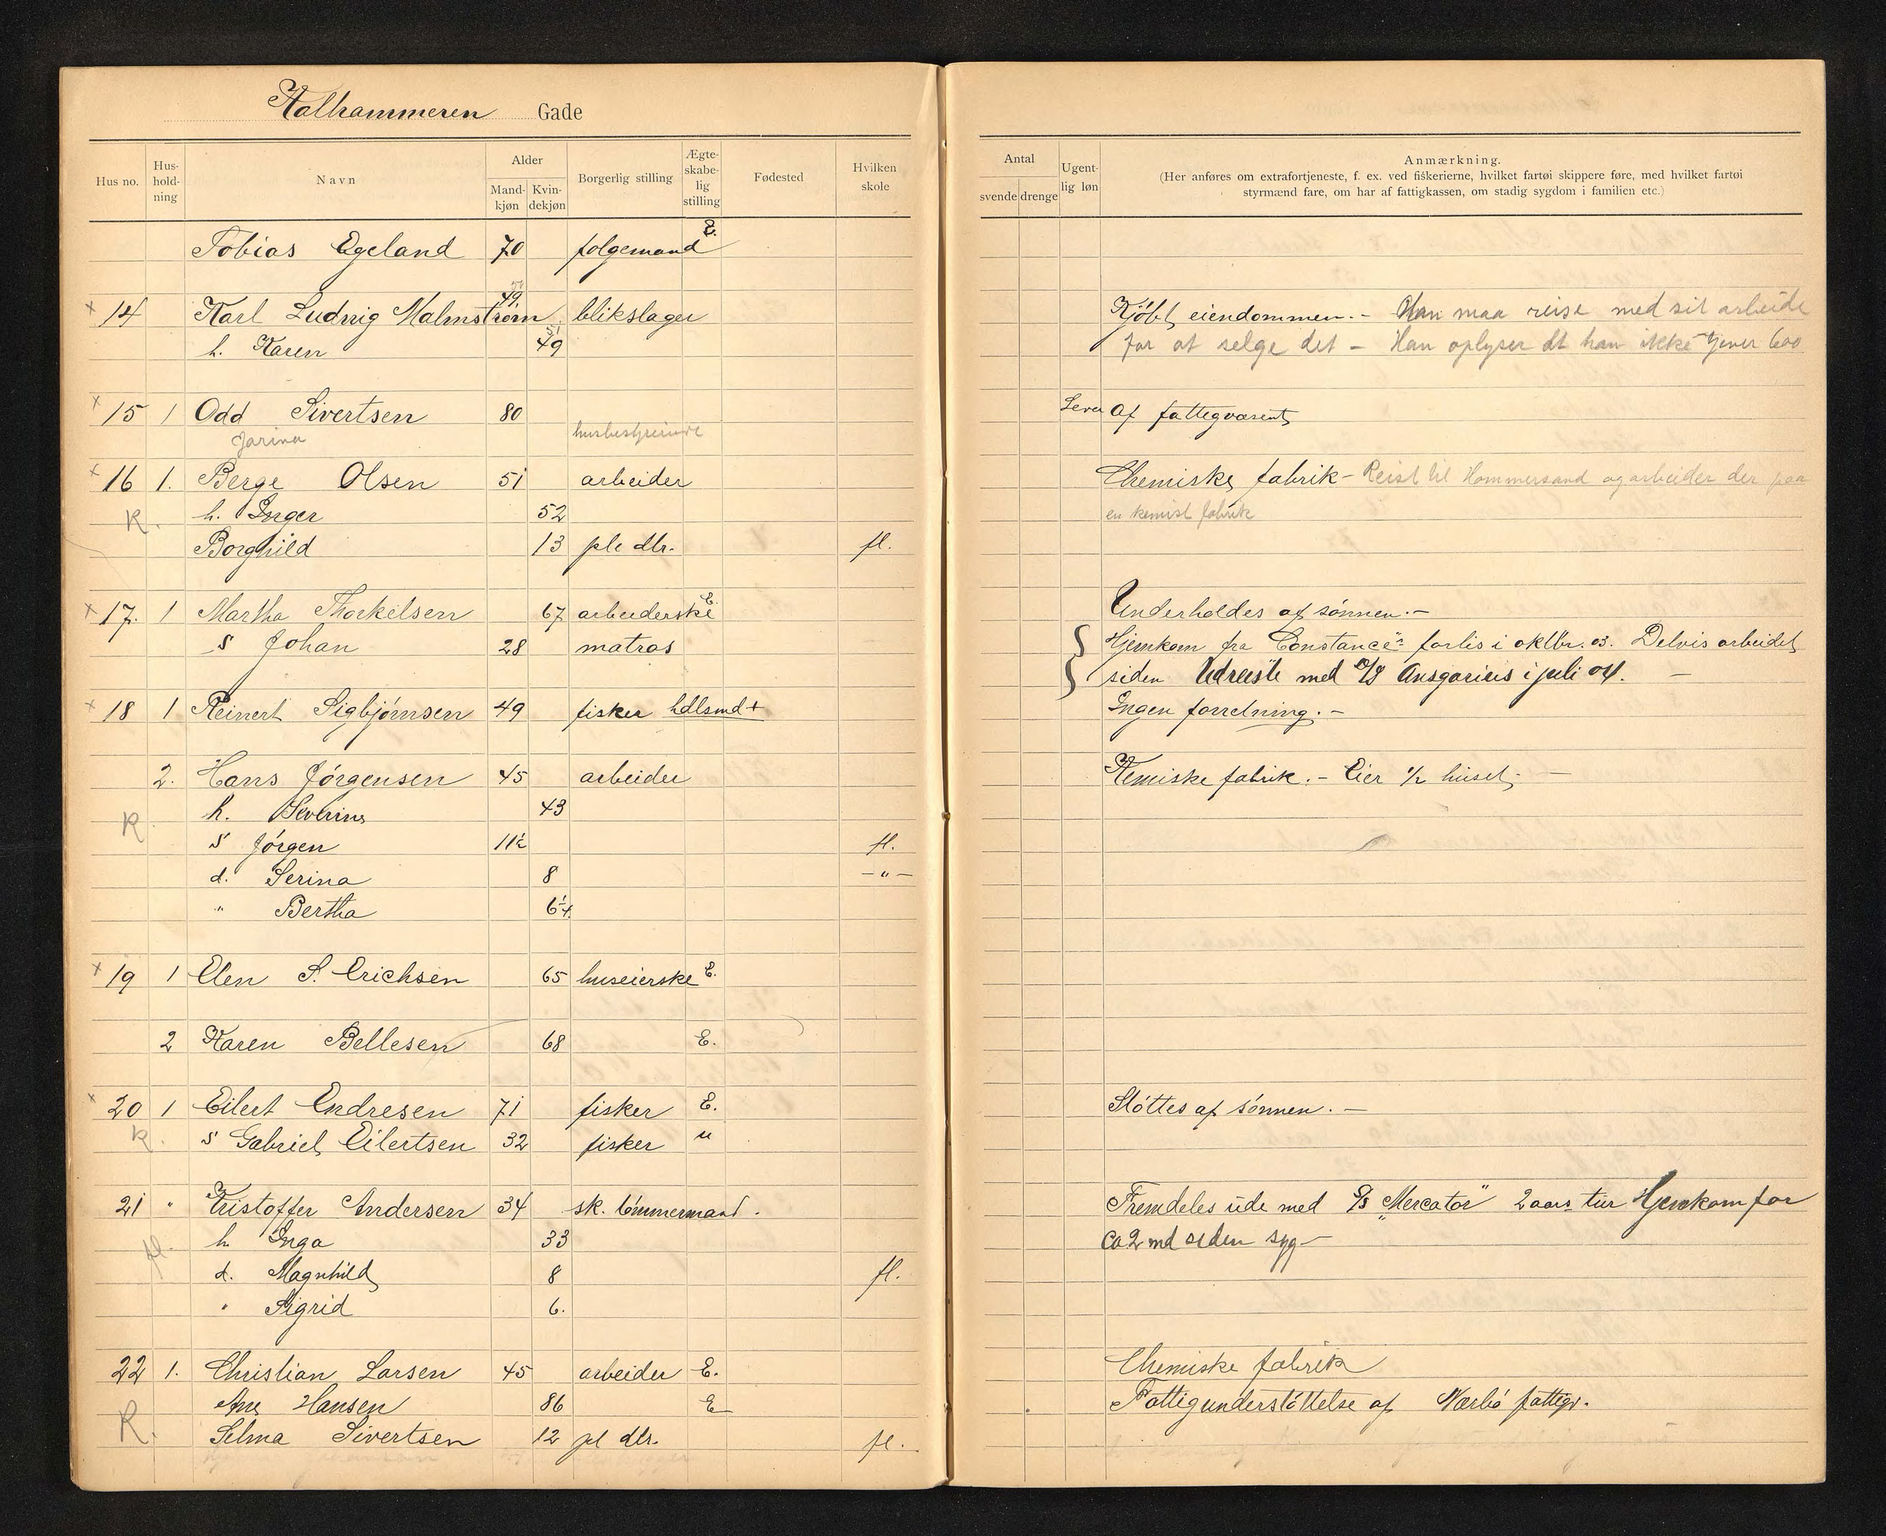 Kalhammeren Gade
Hus no. Hus-hold-ning Navn Alder Mand-kjøn Kvin-dekjøn Borgerlig stilling Ægte-skabe-lig stilling Fødested Hvilken skole
Antal svende drenge Ugent-lig løn Anmærkning.
(Her anføres om extrafortjeneste, f. ex. ved fiskerierne, hvilket fartøi skippere føre, med hvilket fartøi
styrmænd fare, om har af fattigkassen, om stadig sygdom i familien etc.)
Tobias Egeland 70 folgemand E.
14 Karl Ludvig Malmstrøm 49 blikslager Kjøbt eiendommen. - Han maa reise med sit arbeide
h. Karen 49 for at selge det - Han oplyser at han ikke tjener 600
15 1 Odd Sivertsen 80 Lever af fattigvæsent
Jorina husbestyrerinde
16 1. Berge Olsen 51 arbeider Chemiske fabrik - Reist til Hommersand og arbeider der paa
K. h. Inger 52 en kemisk fabrik
Borghild 13 ple dtr. fl.
17. 1 Martha Thorkelsen 67 arbeiderske E. Underholdes af sønnen. -
s Johan 28 matros Hjemkom fra "Constance"s forlis i oktbr. 03. Delvis arbeidet
siden Udreiste med D/S Ansgarius i juli 04. -
18 1 Reinert Sigbjørnsen 49 fisker hdlsmd + Ingen forretning. -
2. Hans Jørgensen 45 arbeider Kemiske fabrik. - Eier 1/2 huset. -
K. h. Severine 43
s Jørgen 11½ fl.
d. Serina 8 - " -
" Bertha 6¼
19 1 Elen S. Erichsen 65 huseierske E.
2 Karen Bellesen 68 E.
20 1 Eilert Endresen 71 fisker E. Støttes af sønnen. -
K. s Gabriel Eilertsen 32 fisker "
21 " Kristoffer Andersen 34 sk. tømmermand. Fremdeles ude med S/S "Mercator" 2 aars tur Hjemkom for
fl. h Inga 33 ca 2 md siden syg -
d. Magnhild 8 fl.
" Sigrid 6.
22 1. Christian Larsen 45 arbeider E. Chemiske fabrik
Ane Hansen 86 E Fattigunderstøttelse af Nærbø fattigv.
K. Selma Sivertsen 12 pl dtr. fl.